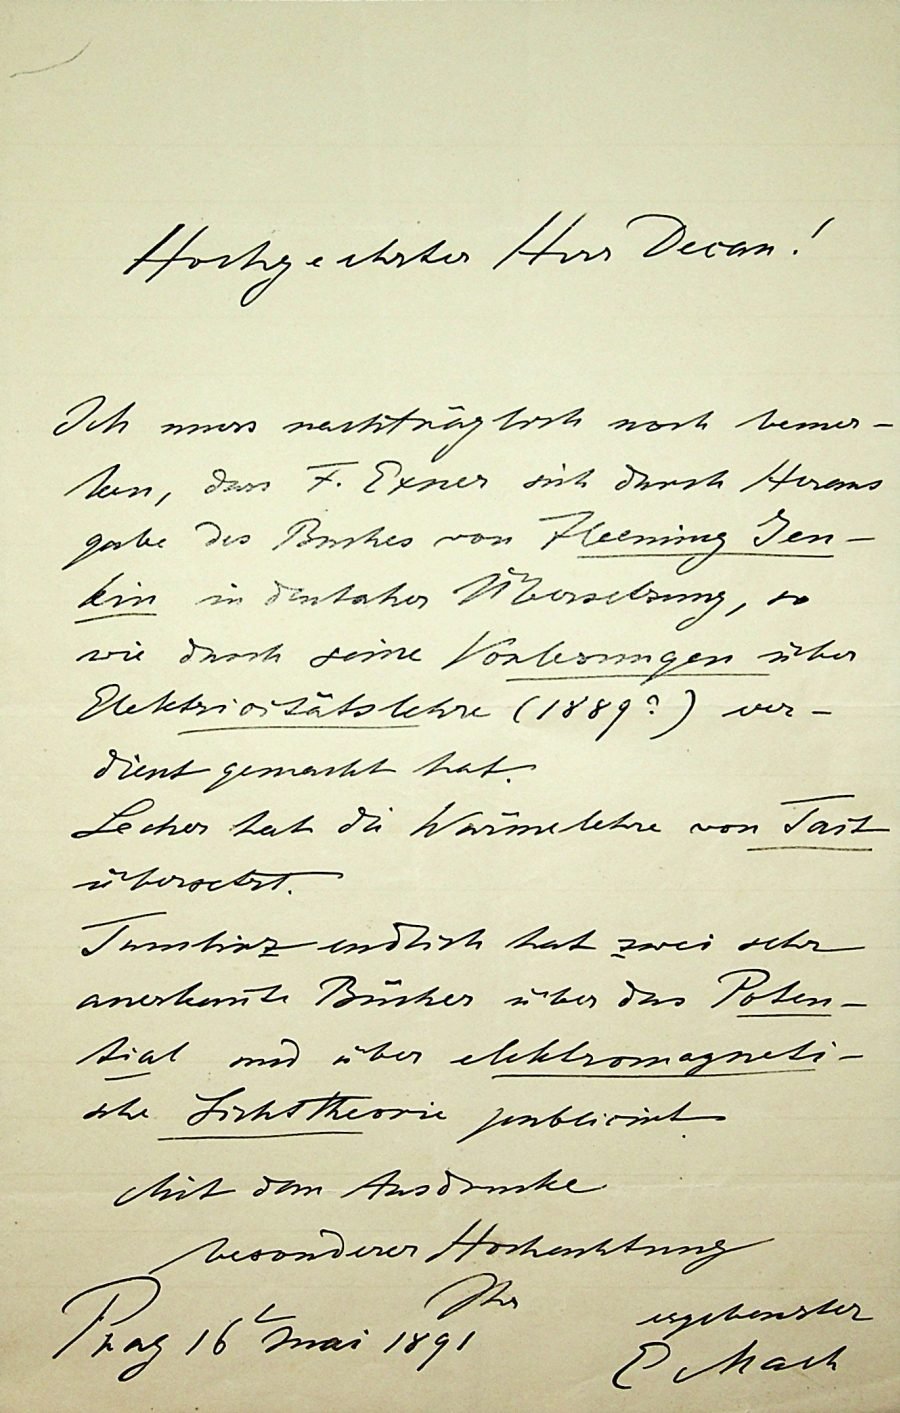 Hochgeehrter Herr Decan!
Ich muss nachträglich noch bemer-
ken, dass F. Exner sich durch Heraus
gabe des Buches von Fleeming Jen-
kin in deutscher Übersetzung, so
wie durch seine Vorlesungen über
Elektricitätslehre (1889?) ver-
dient gemacht hat.
Lecher hat die Wärmelehre von Tait
übersetzt.
Tumlirz endlich hat zwei sehr
anerkannte Bücher über das Poten-
tial und über elektromagneti-
sche Lichttheorie publicirt.
Mit dem Ausdrucke
besonderer Hochachtung
Ihr
ergebenster
Prag 16t Mai 1891
E Mach